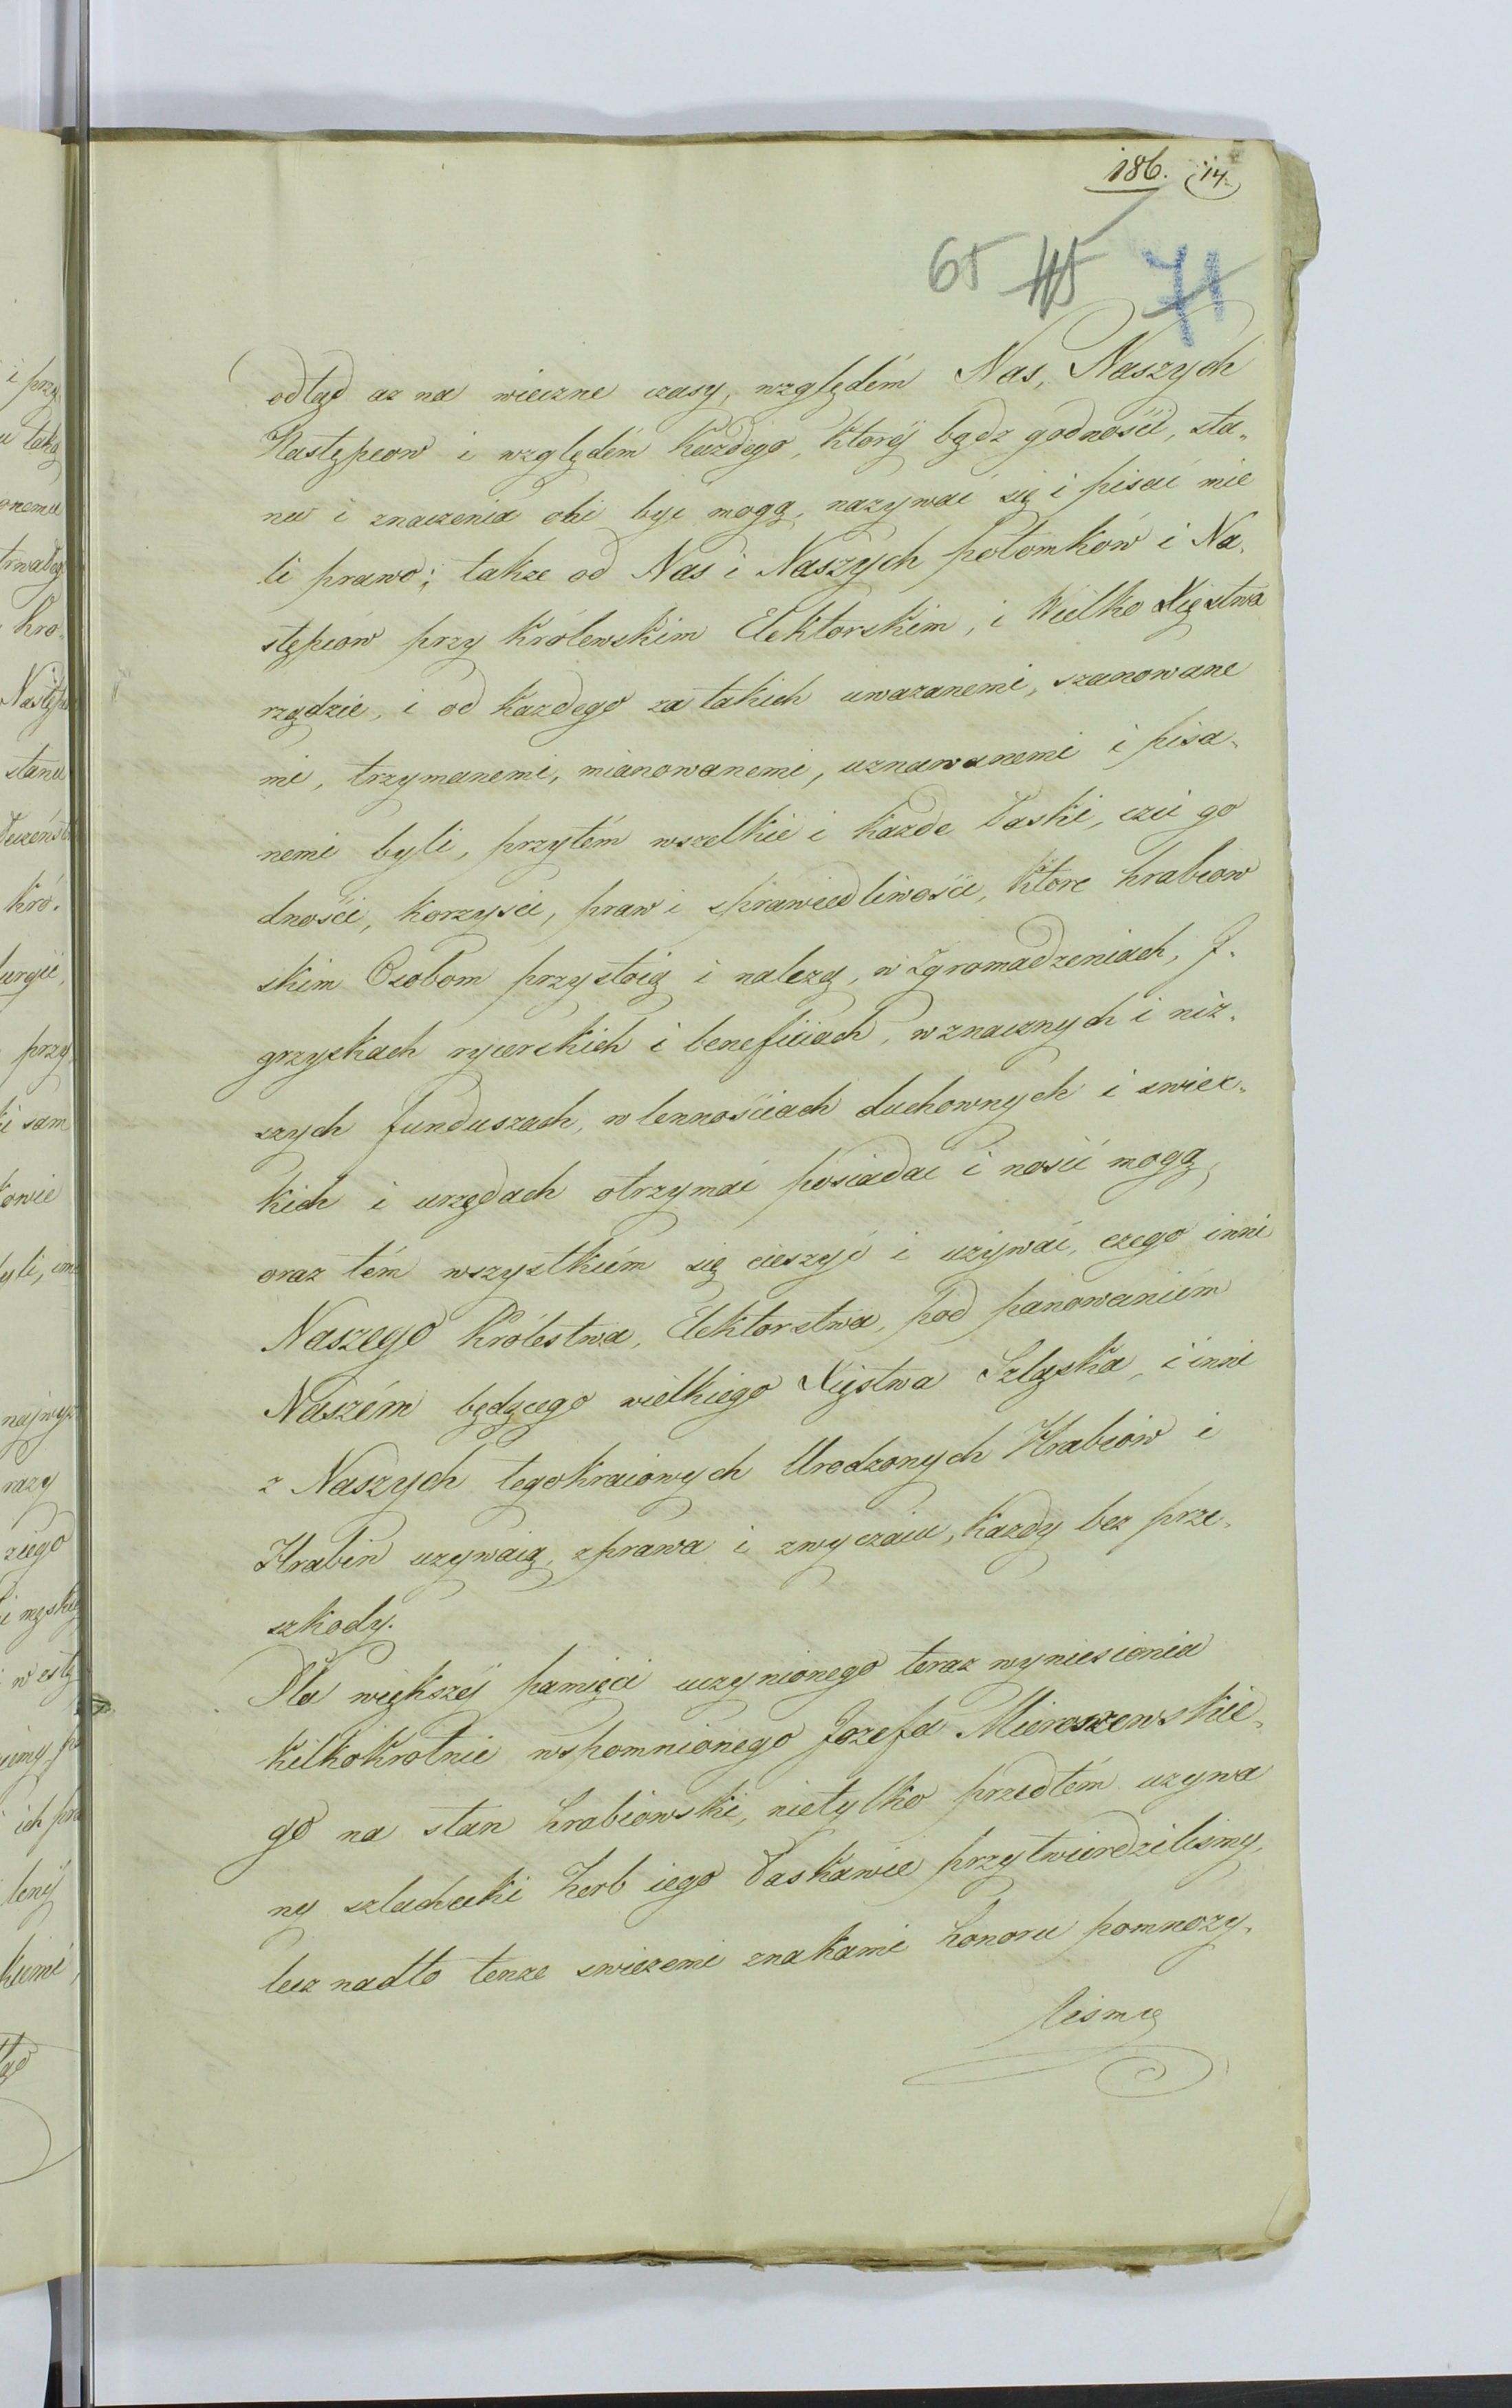 186. 14.
65 115 71
odtąd az na wieczne czasy, względem Nas, Naszych
Następcow i względem kazdego, ktorej bądz godności, sta-
nu i znaczenia oni byc mogą, nazywać się i pisać mie
li prawo; takze od Nas i Naszych potomków i Na-
stępców przy Królewskim Elektorskim, i Wielko Xięstwa
rządzie, i od kazdego za takich uwazanemi, szanowane
mi, trzymanemi, mianowanemi, uznawanemi i pisa-
nemi byli, przytém wszelkie i kazde łaski, czci go
dności, korzyści, praw i sprawiedliwości, ktore hrabiow
skim Osobom przystoią i nalezą, w Zgromadzeniach, J-
grzyskach rycerskich i beneficiach, w znacznych i niz-
szych funduszach, w lennościach duchownych i swiec-
kich i urzędach otrzymać posiadac i nosić mogą,
oraz tém wszystkiém się cieszyć i uzywać, czego inni
Naszego Królestwa, Elektorstwa, pod panowaniem
Naszém będącego wielkiego Xięstwa Szląska, i inni
z Naszych tegokraiowych Urodzonych Hrabiow i
Hrabin uzywaią, z prawa i zwyczaiu, kazdy bez prze-
szkody.
Dla większej pamięci uczynionego teraz wyniesienia
kilkokrotnie wspomnionego Jozefa Mieroszewskie-
go na stan hrabiowski, nietylko przedtém uzywa
ny szlachecki herb iego łaskawie przytwierdzilismy,
lecz nadto tenze swiezemi znakami honoru pomnozy-
lismy